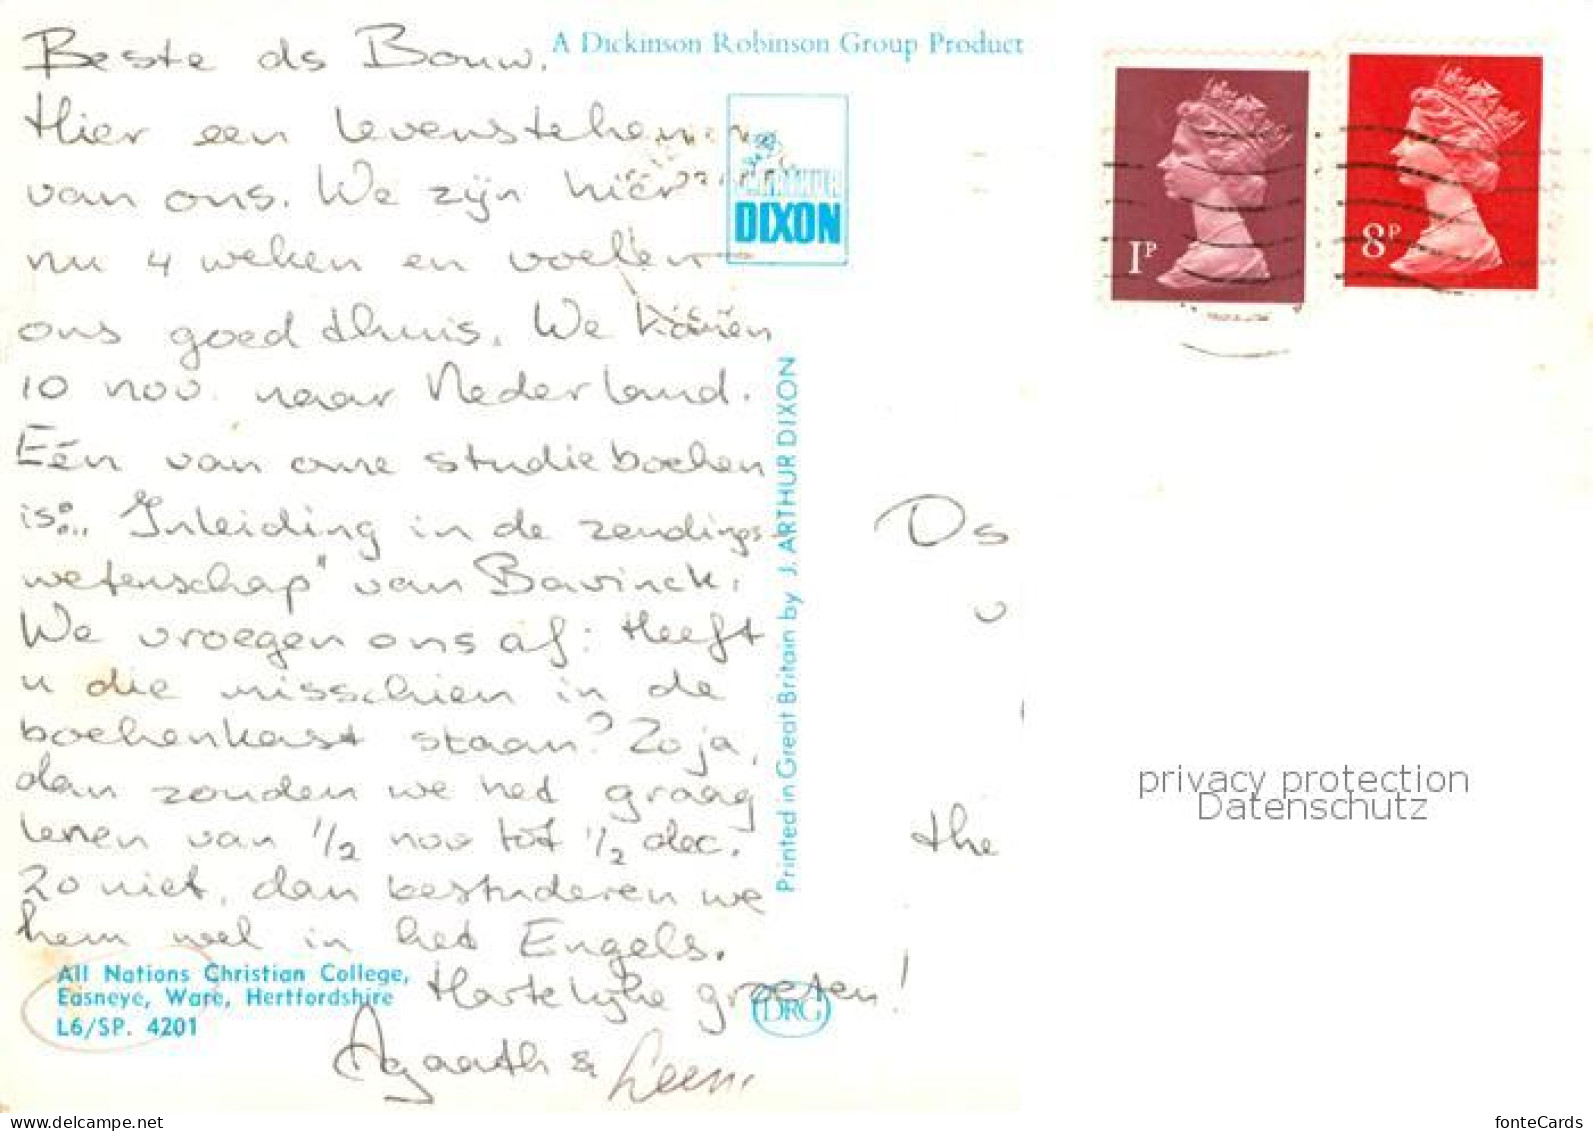 A Dickinson Robinson Group Product
Beste ds Bouw.
Hier een levensteken
van ons. We zijn hier
nu 4 weken en voelen
ons goed thuis. We komen
10 nov. naar Nederland.
Eén van onze studieboeken
is: „Inleiding in de zendings-
wetenschap" van Bavinck.
We vroegen ons af: Heeft
u die misschien in de
boekenkast staan? Zo ja,
dan zouden we het graag
lenen van 1/2 nov tot 1/2 dec.
Zo niet, dan bestuderen we
hem wel in het Engels.
Hartelijke groeten!
Agaath & Leen.
All Nations Christian College,
Easneye, Ware, Hertfordshire
L6/SP. 4201
DIXON
Printed in Great Britain by J. ARTHUR DIXON
DRG
1P
8P
Ds
v
the
privacy protection
Datenschutz
delcampe.net
fonteCards